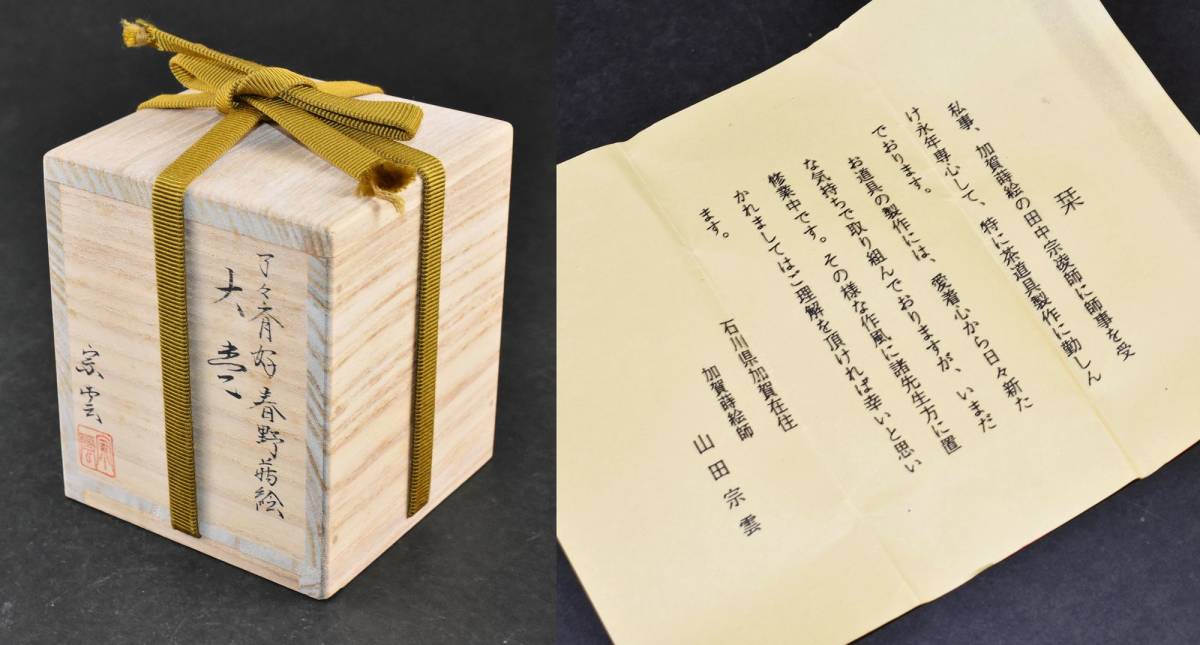 了々斎好春野蒔絵
大棗
宗雲
栞
私事、加賀蒔絵の田中宗凌師に師事を受
け永年専心して、特に茶道具製作に勤しん
でおります。
お道具の製作には、愛着心から日々新た
な気持ちで取り組んでおりますが、いまだ
修業中です。その様な作風に諸先生方に置
かれましてはご理解を頂ければ幸いと思い
ます。
石川県加賀在住
加賀蒔絵師
山田宗雲